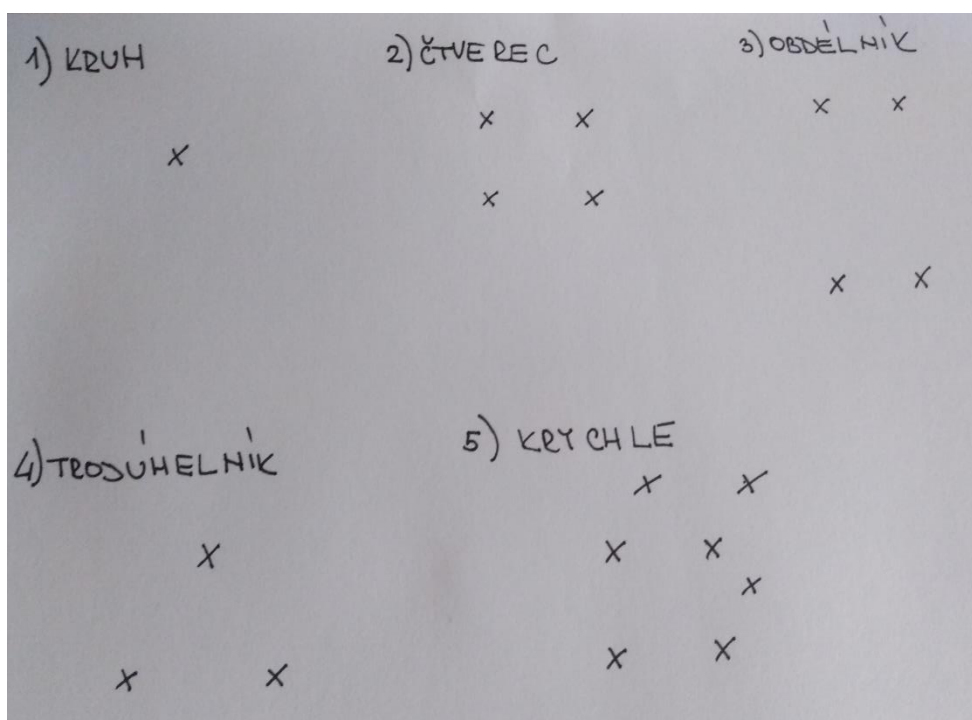 1) KRUH
2) ČTVEREC
3) OBDÉLNÍK
4) TROJÚHELNÍK
5) KRYCHLE